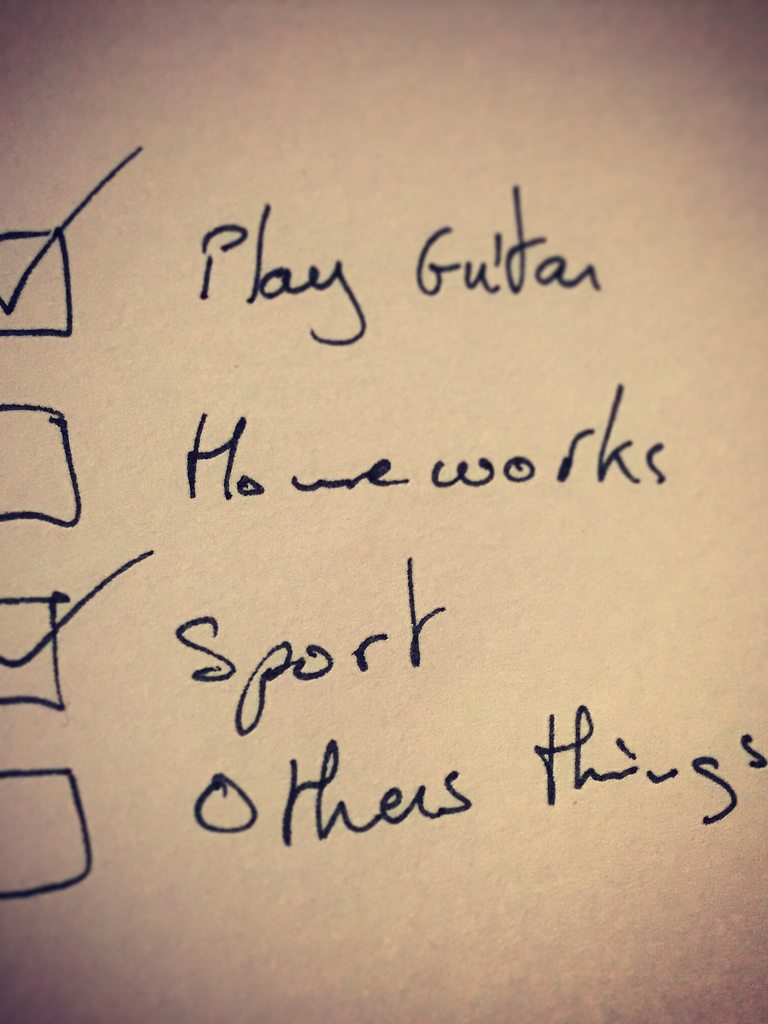 Play Guitar
Homeworks
Sport
Others things